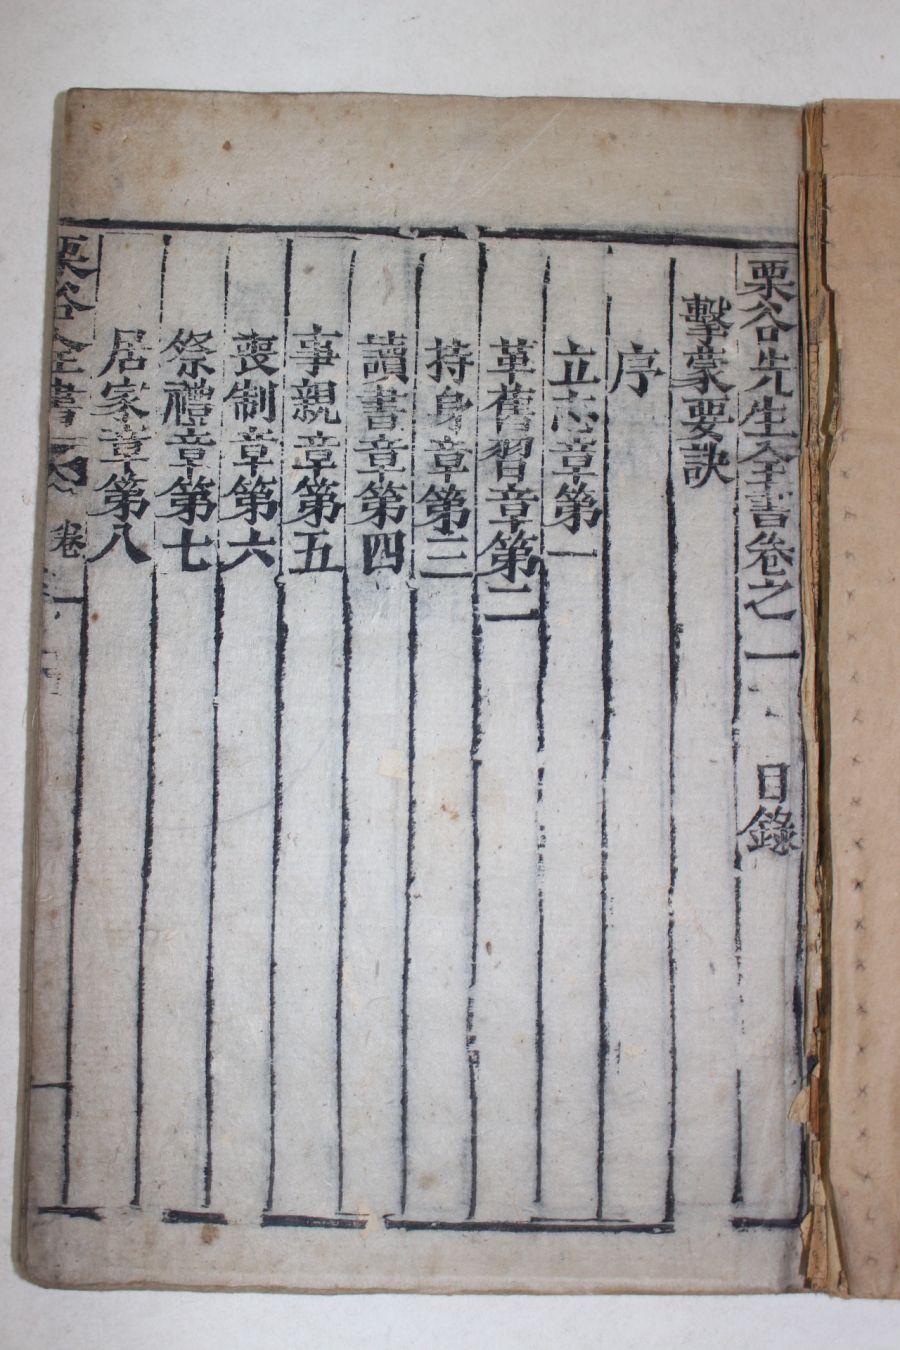 栗谷先生全書卷之一 目錄
擊蒙要訣
序
立志章第一
革舊習章第二
持身章第三
讀書章第四
事親章第五
喪制章第六
祭禮章第七
居家章第八
栗谷全書 卷